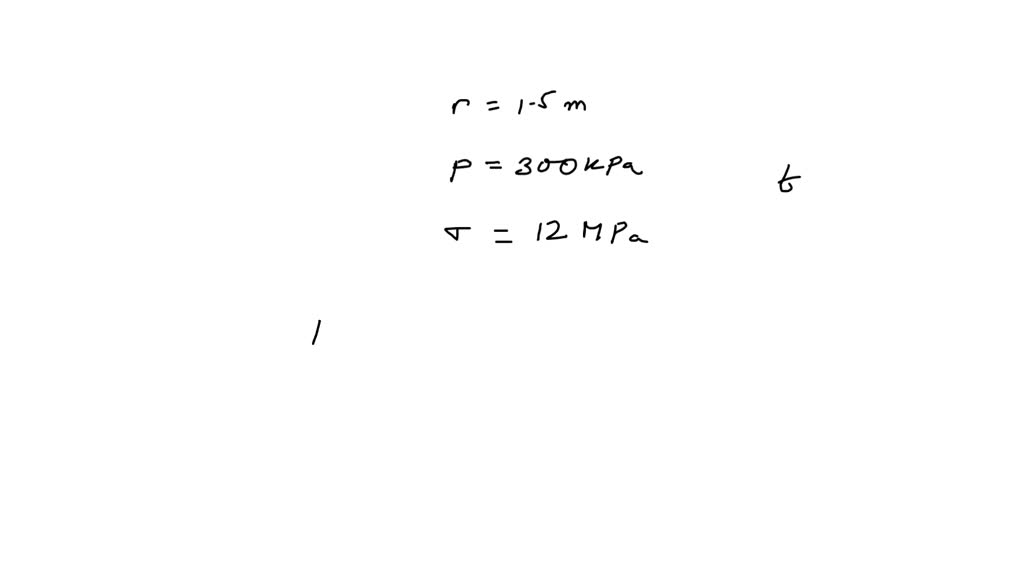 r = 1.5 m
P = 300 kPa
t
σ = 12 MPa
/